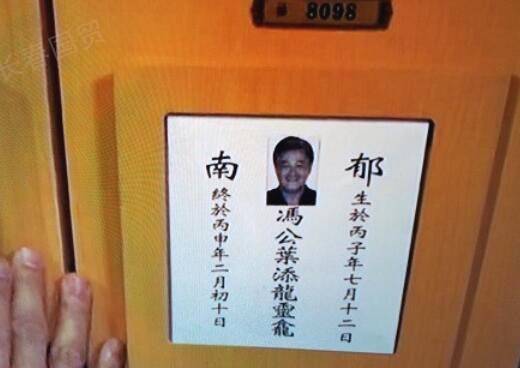 8098
郁
生於丙子年七月十二日
馮公葉添龍靈龕
南
終於丙申年二月初十日
长春国贸